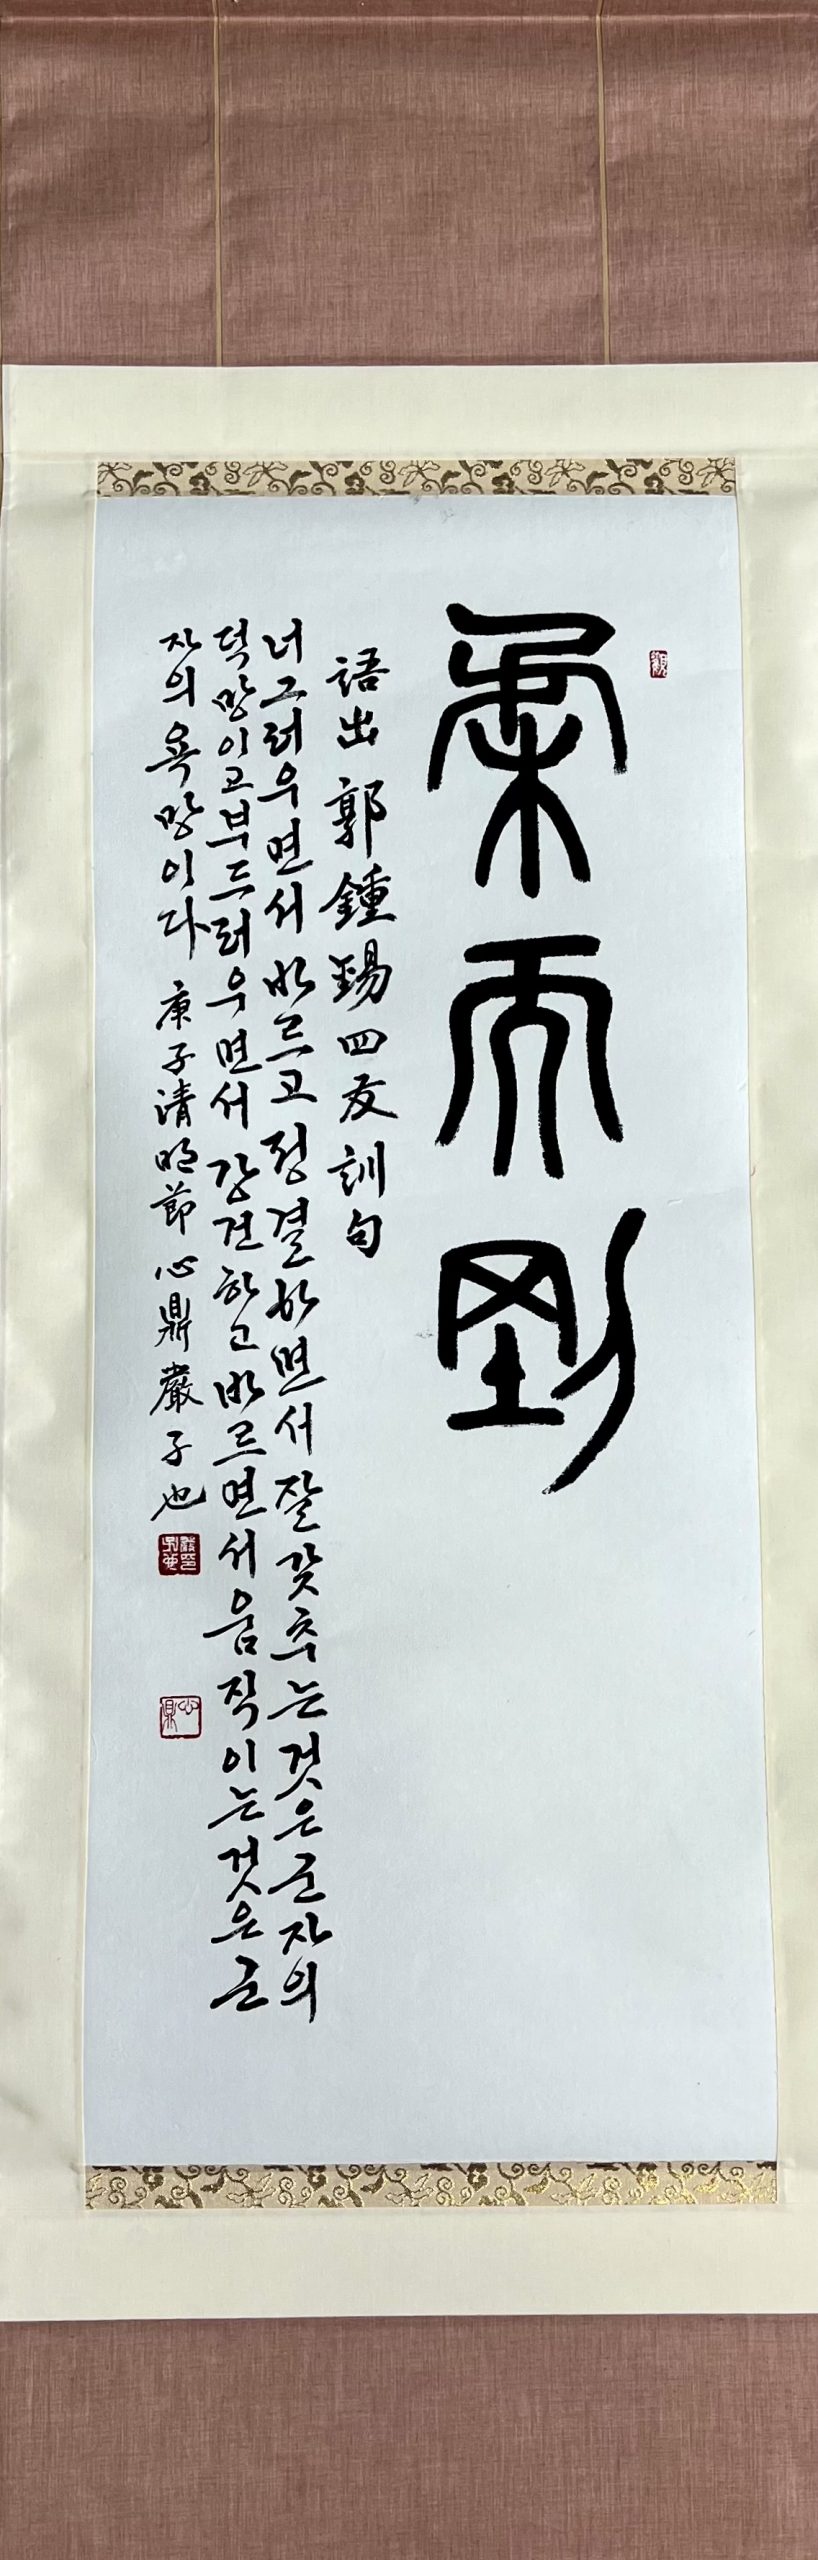 柔而剛
語出郭鍾錫四友訓句
너그러우면서 바르고 정결하면서 잘 갖추는 것은 군자의
덕망이고 부드러우면서 강건하고 바르면서 움직이는 것은 군
자의 욕망이다 庚子淸明節 心鼎 嚴子也
心鼎